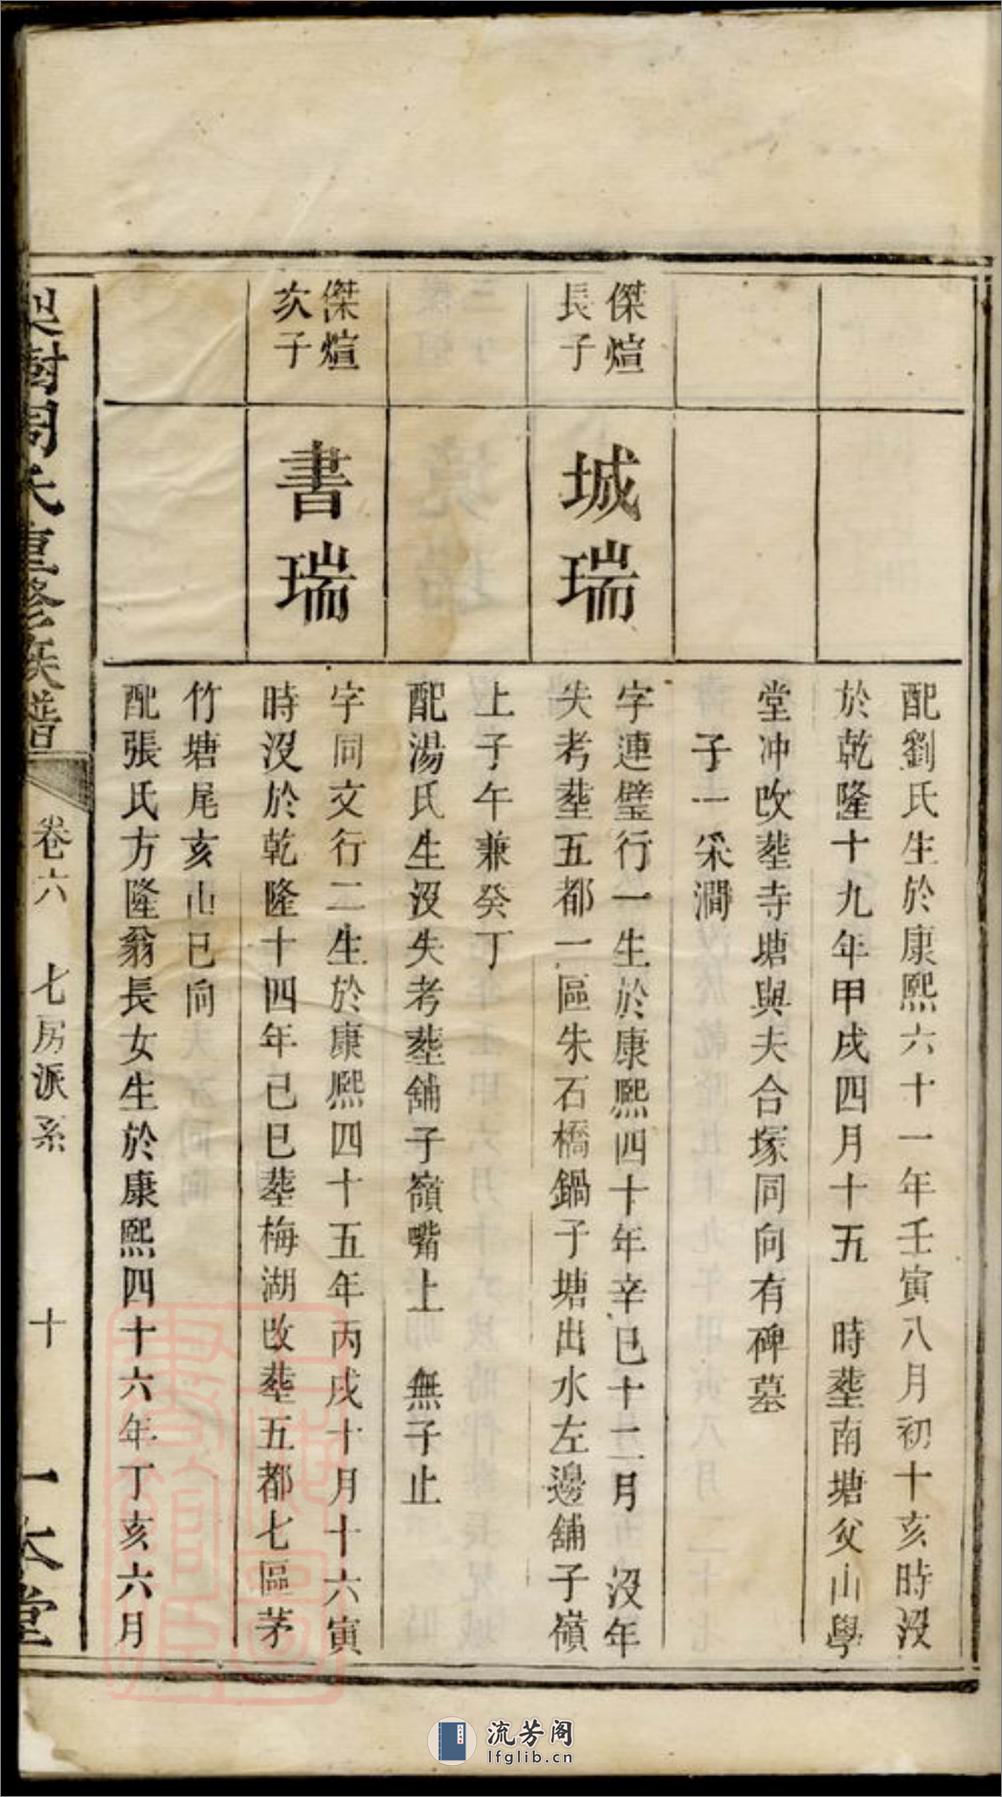 配劉氏生於康熙六十一年壬寅八月初十亥時沒
於乾隆十九年甲戌四月十五　時塟南塘父山學
堂冲改塟寺塘與夫合塚同向有碑墓
子一采澗
傑煊
長子
城瑞
字連璧行一生於康熙四十年辛巳十二月　沒年
失考塟五都一區朱石橋鍋子塘出水左邊舖子嶺
上子午兼癸丁
配湯氏生沒失考塟舖子嶺嘴上　無子止
傑煊
次子
書瑞
字同文行二生於康熙四十五年丙戌十月十六寅
時沒於乾隆十四年己巳塟梅湖改塟五都七區茅
竹塘尾亥山巳向
配張氏方隆翁長女生於康熙四十六年丁亥六月
樹周氏重修族譜
卷六　七房派系　十　一本堂
流芳阁
lfglib.cn